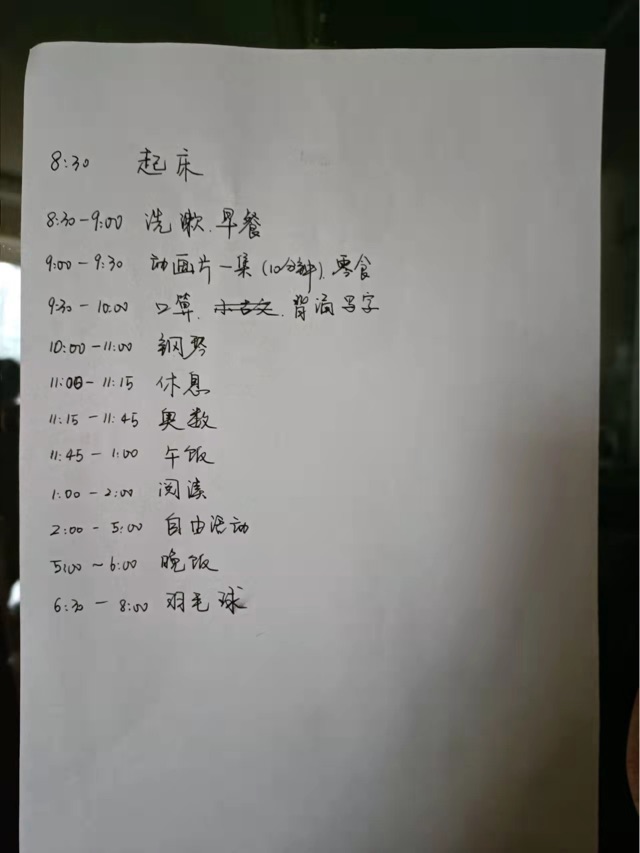 8:30 起床
8:30-9:00 洗漱、早餐
9:00-9:30 动画片一集(10分钟)、零食
9:30-10:00 口算、小古文、背诵写字
10:00-11:00 钢琴
11:00-11:15 休息
11:15-11:45 奥数
11:45-1:00 午饭
1:00-2:00 阅读
2:00-5:00 自由活动
5:00~6:00 晚饭
6:30-8:00 羽毛球